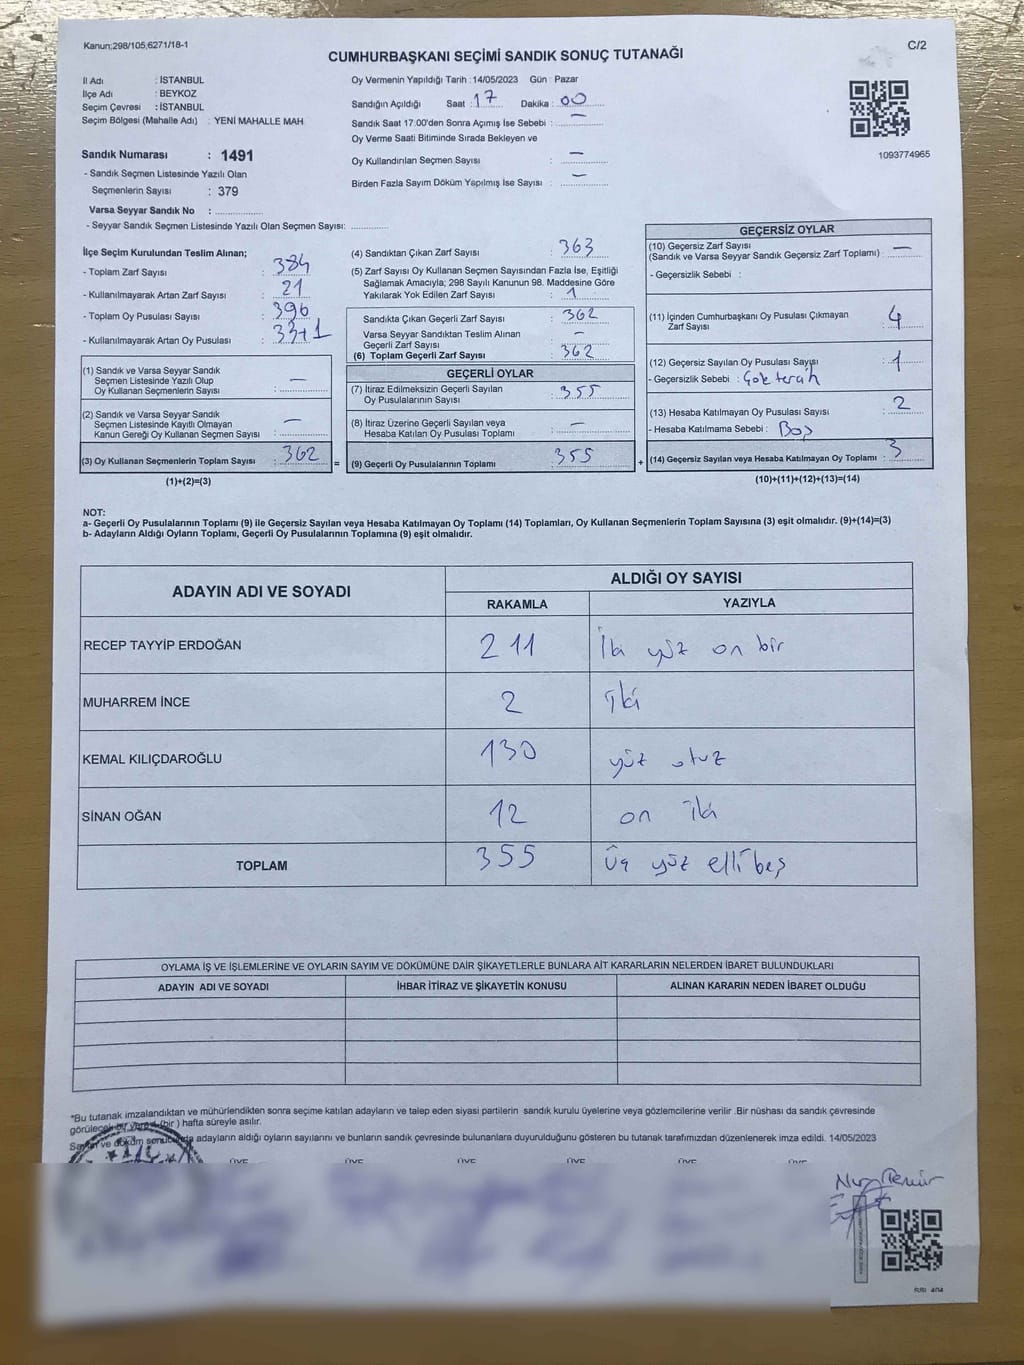 Kanun;298/105;6271/18-1
C/2
CUMHURBAŞKANI SEÇİMİ SANDIK SONUÇ TUTANAĞI
İl Adı : İSTANBUL
İlçe Adı : BEYKOZ
Seçim Çevresi : İSTANBUL
Seçim Bölgesi (Mahalle Adı) : YENİ MAHALLE MAH.
Sandık Numarası : 1491
- Sandık Seçmen Listesinde Yazılı Olan
Seçmenlerin Sayısı : 379
Varsa Seyyar Sandık No :
- Seyyar Sandık Seçmen Listesinde Yazılı Olan Seçmen Sayısı:
Oy Vermenin Yapıldığı Tarih :14/05/2023 Gün : Pazar
Sandığın Açıldığı Saat : 17 Dakika : 00
Sandık Saat 17:00'den Sonra Açımış İse Sebebi : —
Oy Verme Saati Bitiminde Sırada Bekleyen ve
Oy Kullandırılan Seçmen Sayısı : —
Birden Fazla Sayım Döküm Yapılmış İse Sayısı : —
1093774965
İlçe Seçim Kurulundan Teslim Alınan;
- Toplam Zarf Sayısı : 384
- Kullanılmayarak Artan Zarf Sayısı : 21
- Toplam Oy Pusulası Sayısı : 396
- Kullanılmayarak Artan Oy Pusulası : 33+1
(1) Sandık ve Varsa Seyyar Sandık
Seçmen Listesinde Yazılı Olup
Oy Kullanan Seçmenlerin Sayısı : —
(2) Sandık ve Varsa Seyyar Sandık
Seçmen Listesinde Kayıtlı Olmayan
Kanun Gereği Oy Kullanan Seçmen Sayısı : —
(3) Oy Kullanan Seçmenlerin Toplam Sayısı : 362
(1)+(2)=(3)
=
(4) Sandıktan Çıkan Zarf Sayısı : 363
(5) Zarf Sayısı Oy Kullanan Seçmen Sayısından Fazla İse, Eşitliği
Sağlamak Amacıyla; 298 Sayılı Kanunun 98. Maddesine Göre
Yakılarak Yok Edilen Zarf Sayısı : 1
Sandıkta Çıkan Geçerli Zarf Sayısı : 362
Varsa Seyyar Sandıktan Teslim Alınan
Geçerli Zarf Sayısı : —
(6) Toplam Geçerli Zarf Sayısı : 362
GEÇERLİ OYLAR
(7) İtiraz Edilmeksizin Geçerli Sayılan
Oy Pusulalarının Sayısı : 355
(8) İtiraz Üzerine Geçerli Sayılan veya
Hesaba Katılan Oy Pusulası Toplamı : —
(9) Geçerli Oy Pusulalarının Toplamı : 355
+
GEÇERSİZ OYLAR
(10) Geçersiz Zarf Sayısı
(Sandık ve Varsa Seyyar Sandık Geçersiz Zarf Toplamı) : —
- Geçersizlik Sebebi :
(11) İçinden Cumhurbaşkanı Oy Pusulası Çıkmayan
Zarf Sayısı : 4
(12) Geçersiz Sayılan Oy Pusulası Sayışı : 1
- Geçersizlik Sebebi : Çok tercih
(13) Hesaba Katılmayan Oy Pusulası Sayısı : 2
- Hesaba Katılmama Sebebi : Boş
(14) Geçersiz Sayılan veya Hesaba Katılmayan Oy Toplamı : 3
(10)+(11)+(12)+(13)=(14)
NOT:
a- Geçerli Oy Pusulalarının Toplamı (9) ile Geçersiz Sayılan veya Hesaba Katılmayan Oy Toplamı (14) Toplamları, Oy Kullanan Seçmenlerin Toplam Sayısına (3) eşit olmalıdır. (9)+(14)=(3)
b- Adayların Aldığı Oyların Toplamı, Geçerli Oy Pusulalarının Toplamına (9) eşit olmalıdır.
ADAYIN ADI VE SOYADI ALDIĞI OY SAYISI
RAKAMLA YAZIYLA
RECEP TAYYİP ERDOĞAN 211 İki yüz on bir
MUHARREM İNCE 2 iki
KEMAL KILIÇDAROĞLU 130 yüz otuz
SİNAN OĞAN 12 on iki
TOPLAM 355 Üç yüz elli beş
OYLAMA İŞ VE İŞLEMLERİNE VE OYLARIN SAYIM VE DÖKÜMÜNE DAİR ŞİKAYETLERLE BUNLARA AİT KARARLARIN NELERDEN İBARET BULUNDUKLARI
ADAYIN ADI VE SOYADI İHBAR İTİRAZ VE ŞİKAYETİN KONUSU ALINAN KARARIN NEDEN İBARET OLDUĞU
*Bu tutanak imzalandıktan ve mühürlendikten sonra seçime katılan adayların ve talep eden siyasi partilerin sandık kurulu üyelerine veya gözlemcilerine verilir .Bir nüshası da sandık çevresinde
görülecek bir yere (bir ) hafta süreyle asılır.
Sayım ve döküm sonucunda adayların aldığı oyların sayılarını ve bunların sandık çevresinde bulunanlara duyurulduğunu gösteren bu tutanak tarafımızdan düzenlenerek imza edildi. 14/05/2023
ÜYE ÜYE ÜYE ÜYE ÜYE ÜYE